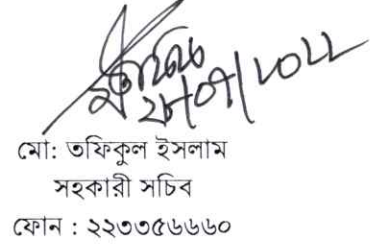 ২৮/০৭/২০২২
মো: তফিকুল ইসলাম
সহকারী সচিব
ফোন : ২২৩৩৫৬৬৬০